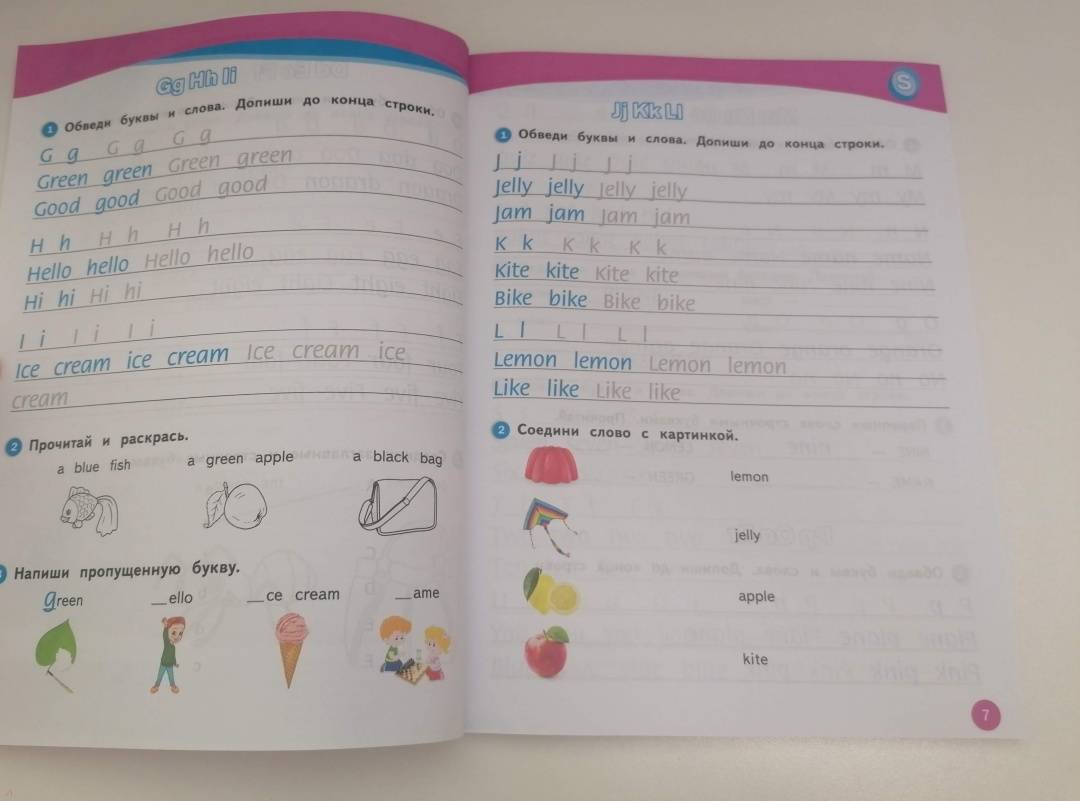 Gg Hh Ii
1 Обведи буквы и слова. Допиши до конца строки.
G g G g G g
Green green Green green
Good good Good good
H h H h H h
Hello hello Hello hello
Hi hi Hi hi
I i I i I i
Ice cream ice cream Ice cream ice
cream
2 Прочитай и раскрась.
a blue fish a green apple a black bag
Напиши пропущенную букву.
green __ello __ce cream __ame
S
Jj Kk Ll
1 Обведи буквы и слова. Допиши до конца строки.
J j J j J j
Jelly jelly Jelly jelly
Jam jam Jam jam
K k K k K k
Kite kite Kite kite
Bike bike Bike bike
L l L l L l
Lemon lemon Lemon lemon
Like like Like like
2 Соедини слово с картинкой.
lemon
jelly
apple
kite
7